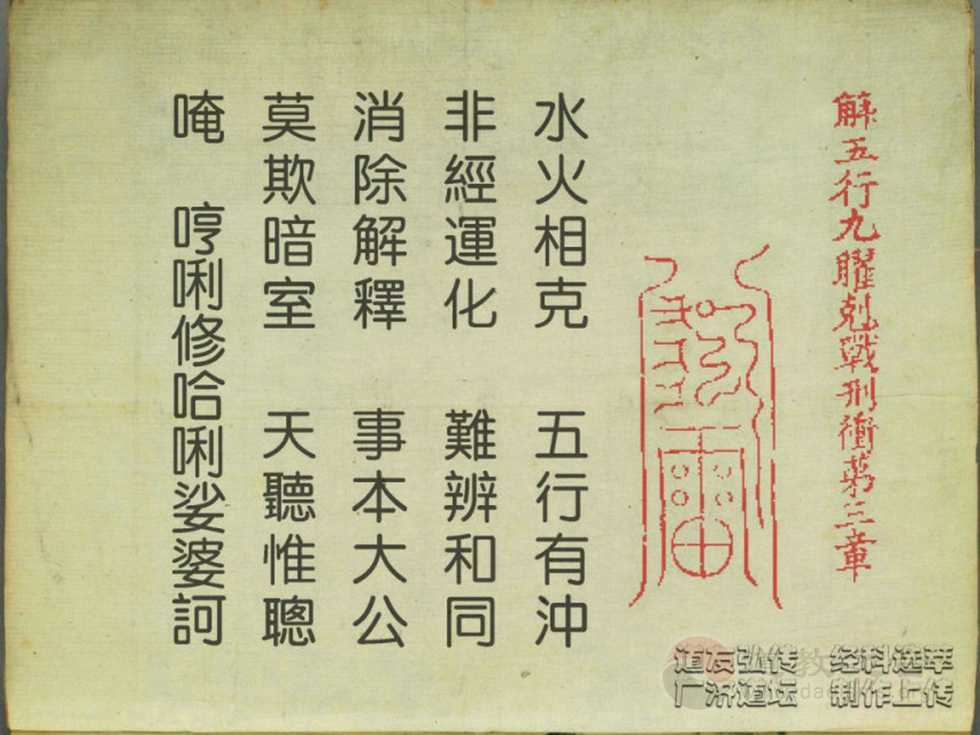 解五行九曜剋戰刑衝第三章
水火相克　五行有沖
非經運化　難辨和同
消除解釋　事本大公
莫欺暗室　天聽惟聰
唵　哼唎修哈唎娑婆訶
道友弘传　经科选萃
广济道坛　制作上传